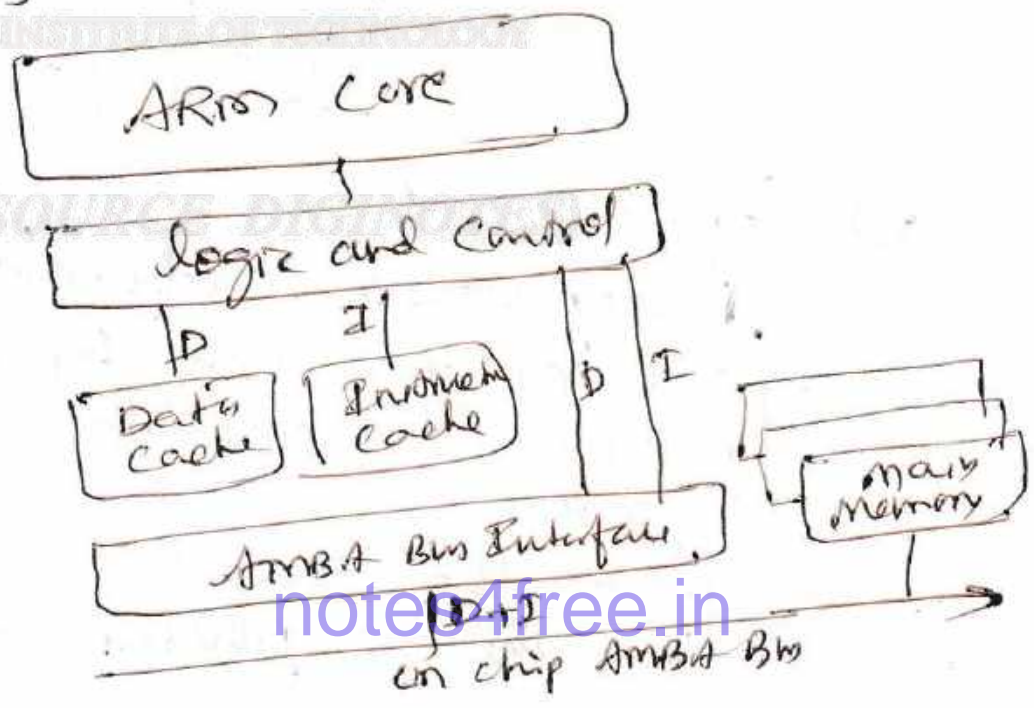 INSTITUTE OF TECHNOLOGY
ARM Core
SOURCE DIGINOTES
logic and Control
D
I
D
I
Data
Cache
Cache
Main
Memory
AMBA Bus Interface
D+I
notes4free.in
on chip AMBA Bus